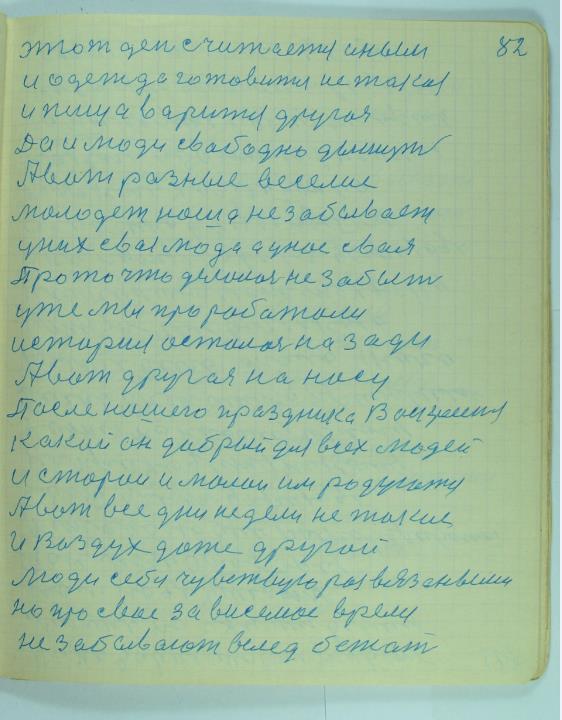 этот ден считается иным 82
и одежда готовится не такая
и пища варится другая
Да и люди свободно дышут
Авот разные веселие
молодеж ноша не забывает
у них своя мода а у нас своя
Про то что делолося не забыт
уже мы проработоли
история осталоя на зади
Авот другая на носу
После нашего праздника
какой он добрый для всех людей
и старои и молои им радуются
Авот все дни недели не такие
и Воздух доже другой
люди себи чувствуют развязаными
но про свое за висемое
не забывают вслед бежат